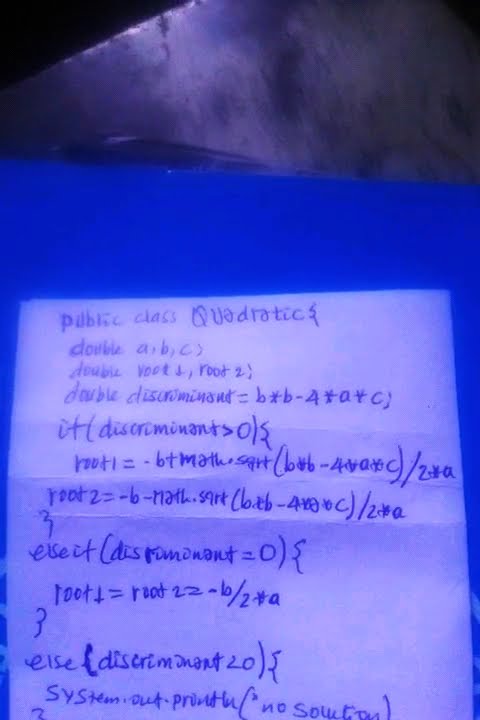 public class Quadratic{
double a,b,c;
double root1, root2;
double discriminant = b*b-4*a*c;
if(discriminant>0){
root1 = -b+math.sqrt(b*b-4*a*c)/2*a
root2 = -b-math.sqrt(b*b-4*a*c)/2*a
}
else if (discriminant=0){
root1 = root2 = -b/2*a
}
else(discriminant<0){
system.out.println("no solution)
}